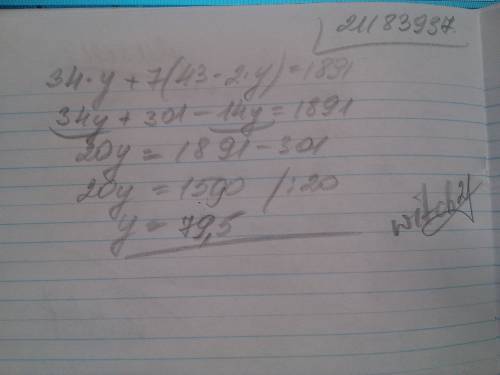 21183937
34·y+7(43-2·y)=1891
34y+301-14y=1891
20y=1891-301
20y=1590 /:20
y=79,5
witch24